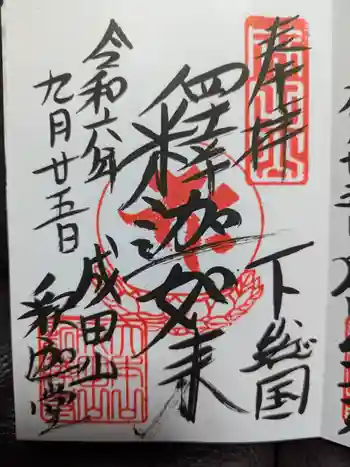 奉拝
下総国
釋迦如来
成田山
釈迦堂
令和六年
九月廿五日